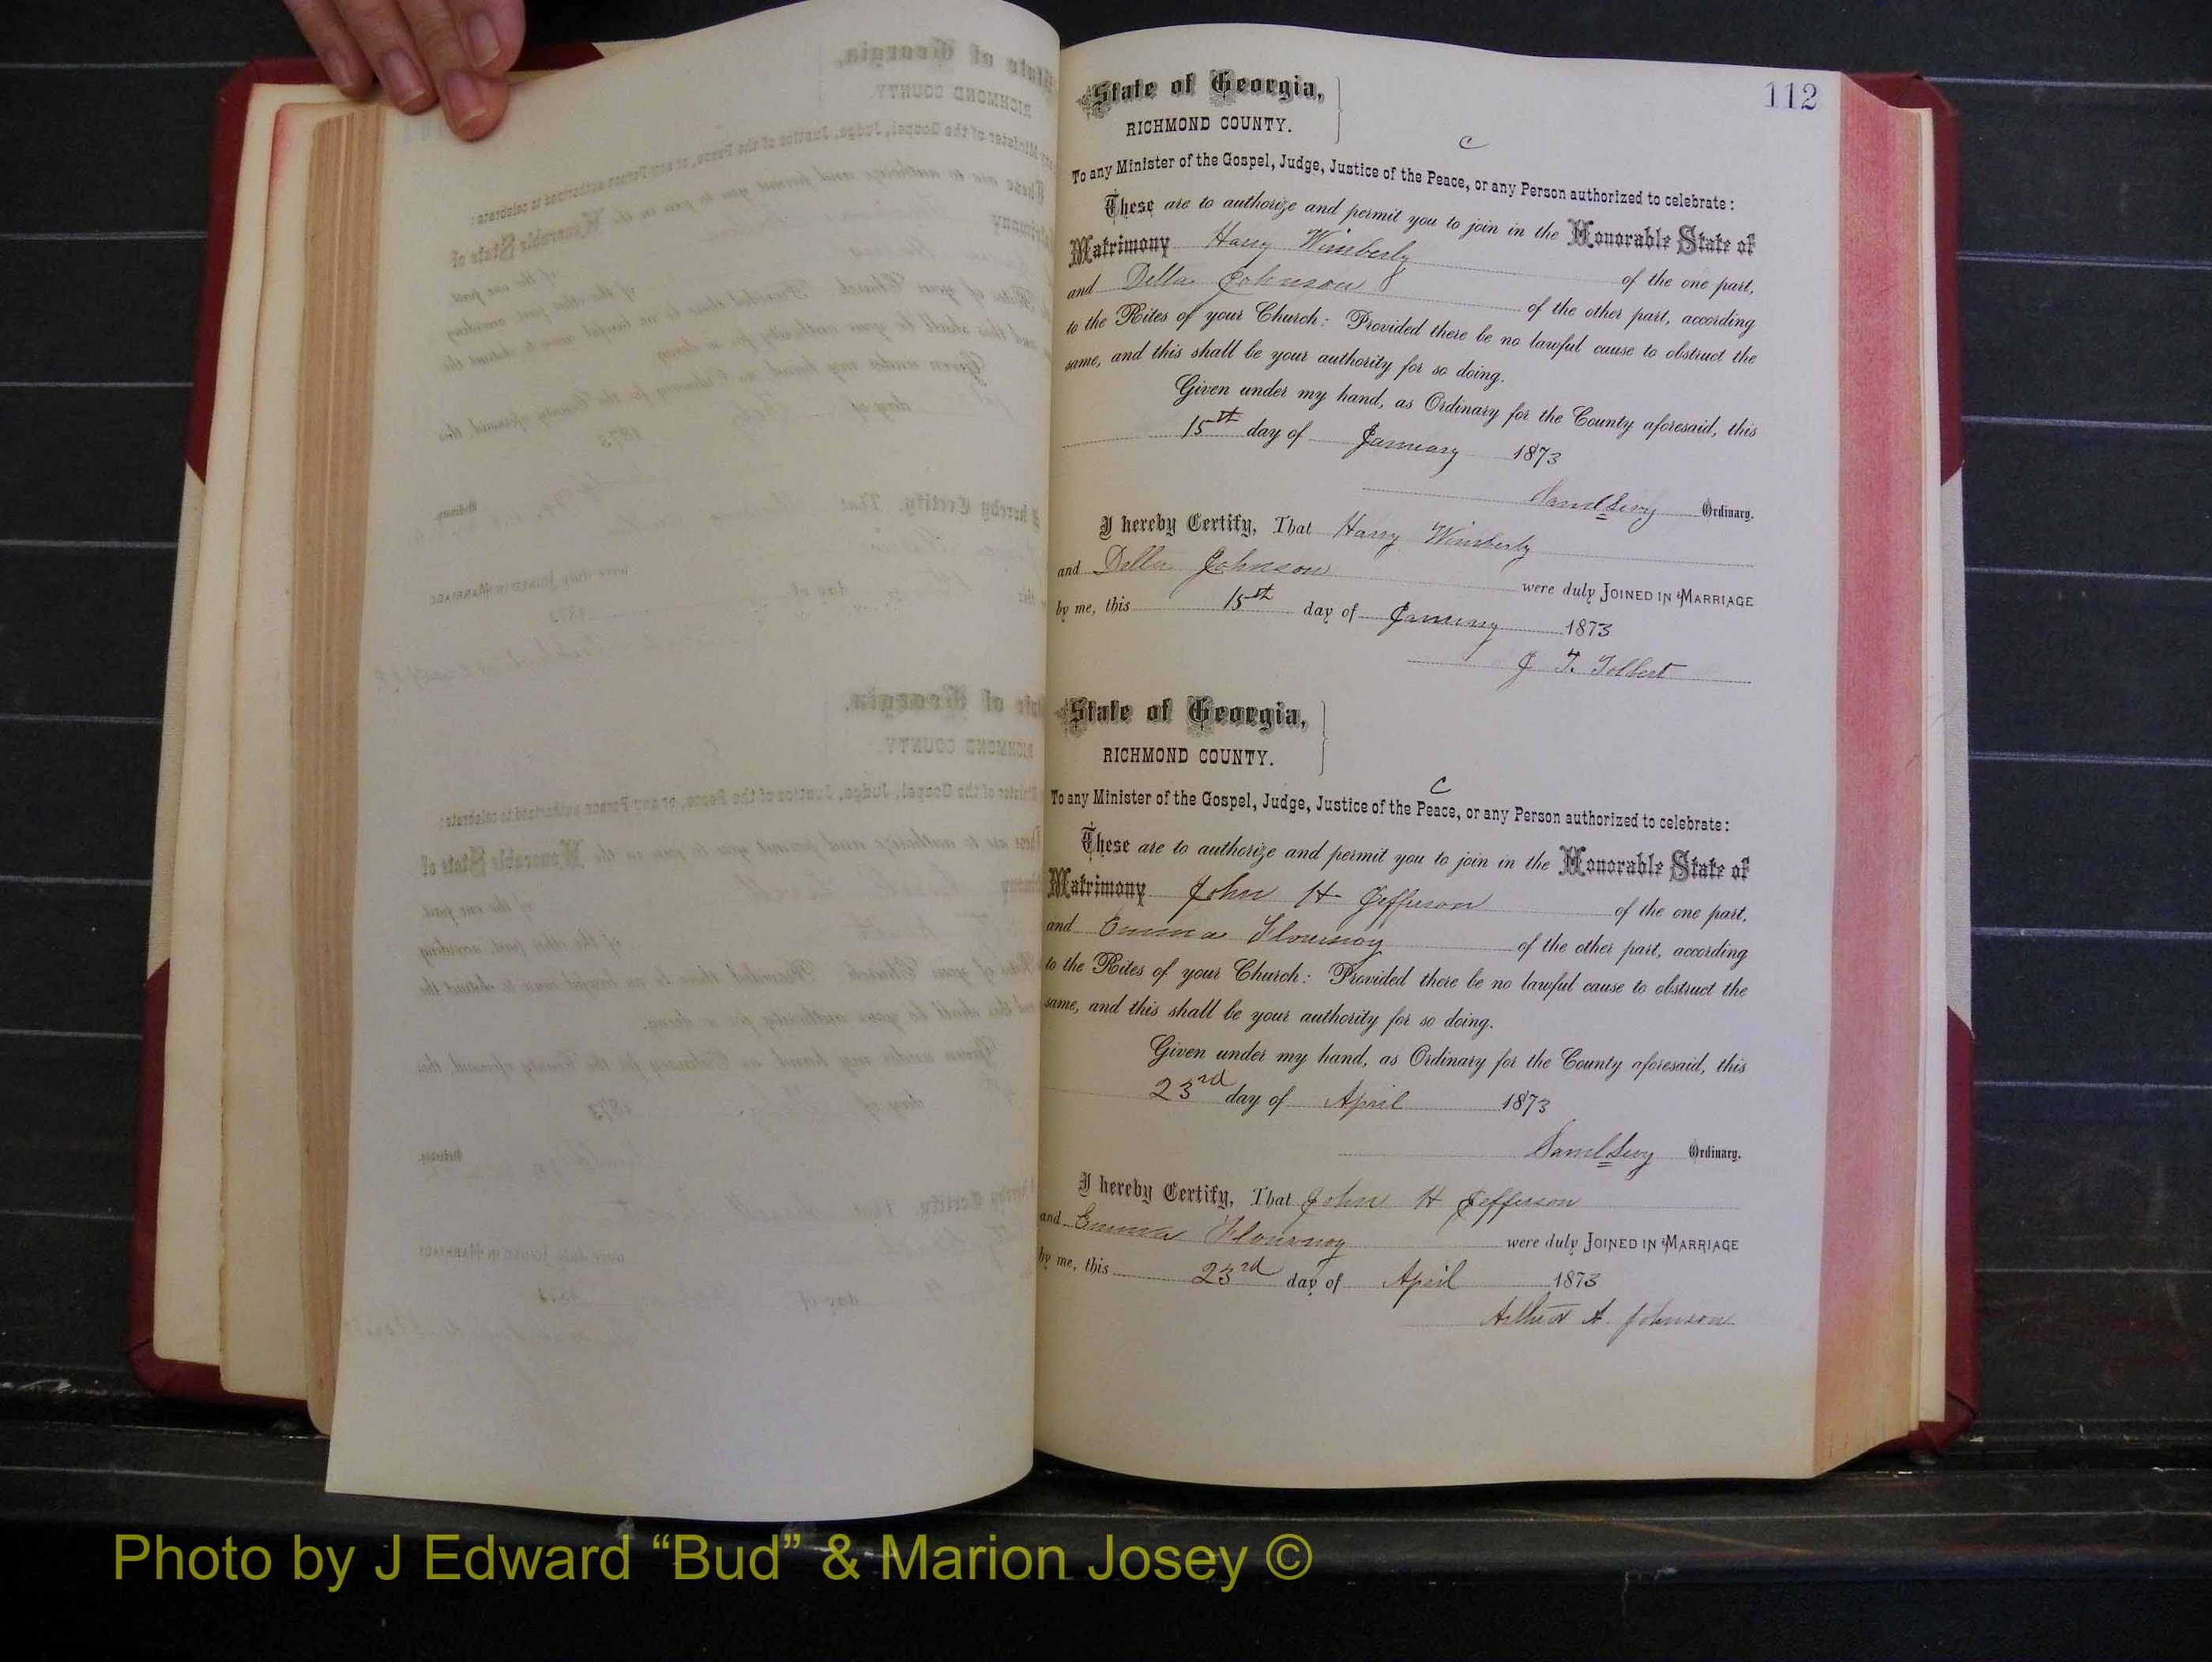 112
State of Georgia,
RICHMOND COUNTY.
C
To any Minister of the Gospel, Judge, Justice of the Peace, or any Person authorized to celebrate:
These are to authorize and permit you to join in the Honorable State of
Matrimony Harry Wimberly of the one part,
and Della Johnson of the other part, according
to the Rites of your Church: Provided there be no lawful cause to obstruct the
same, and this shall be your authority for so doing.
Given under my hand, as Ordinary for the County aforesaid, this
15th day of January 1873
Saml Levy Ordinary.
I hereby Certify, That Harry Wimberly
and Della Johnson were duly JOINED IN MARRIAGE
by me, this 15th day of January 1873
J T. Tolbert
State of Georgia,
RICHMOND COUNTY.
C
To any Minister of the Gospel, Judge, Justice of the Peace, or any Person authorized to celebrate:
These are to authorize and permit you to join in the Honorable State of
Matrimony John H Jefferson of the one part,
and Emma Flournoy of the other part, according
to the Rites of your Church: Provided there be no lawful cause to obstruct the
same, and this shall be your authority for so doing.
Given under my hand, as Ordinary for the County aforesaid, this
23rd day of April 1873
Saml Levy Ordinary.
I hereby Certify, That John H Jefferson
and Emma Flournoy were duly JOINED IN MARRIAGE
by me, this 23rd day of April 1873
Arthur A. Johnson
Photo by J Edward “Bud” & Marion Josey ©